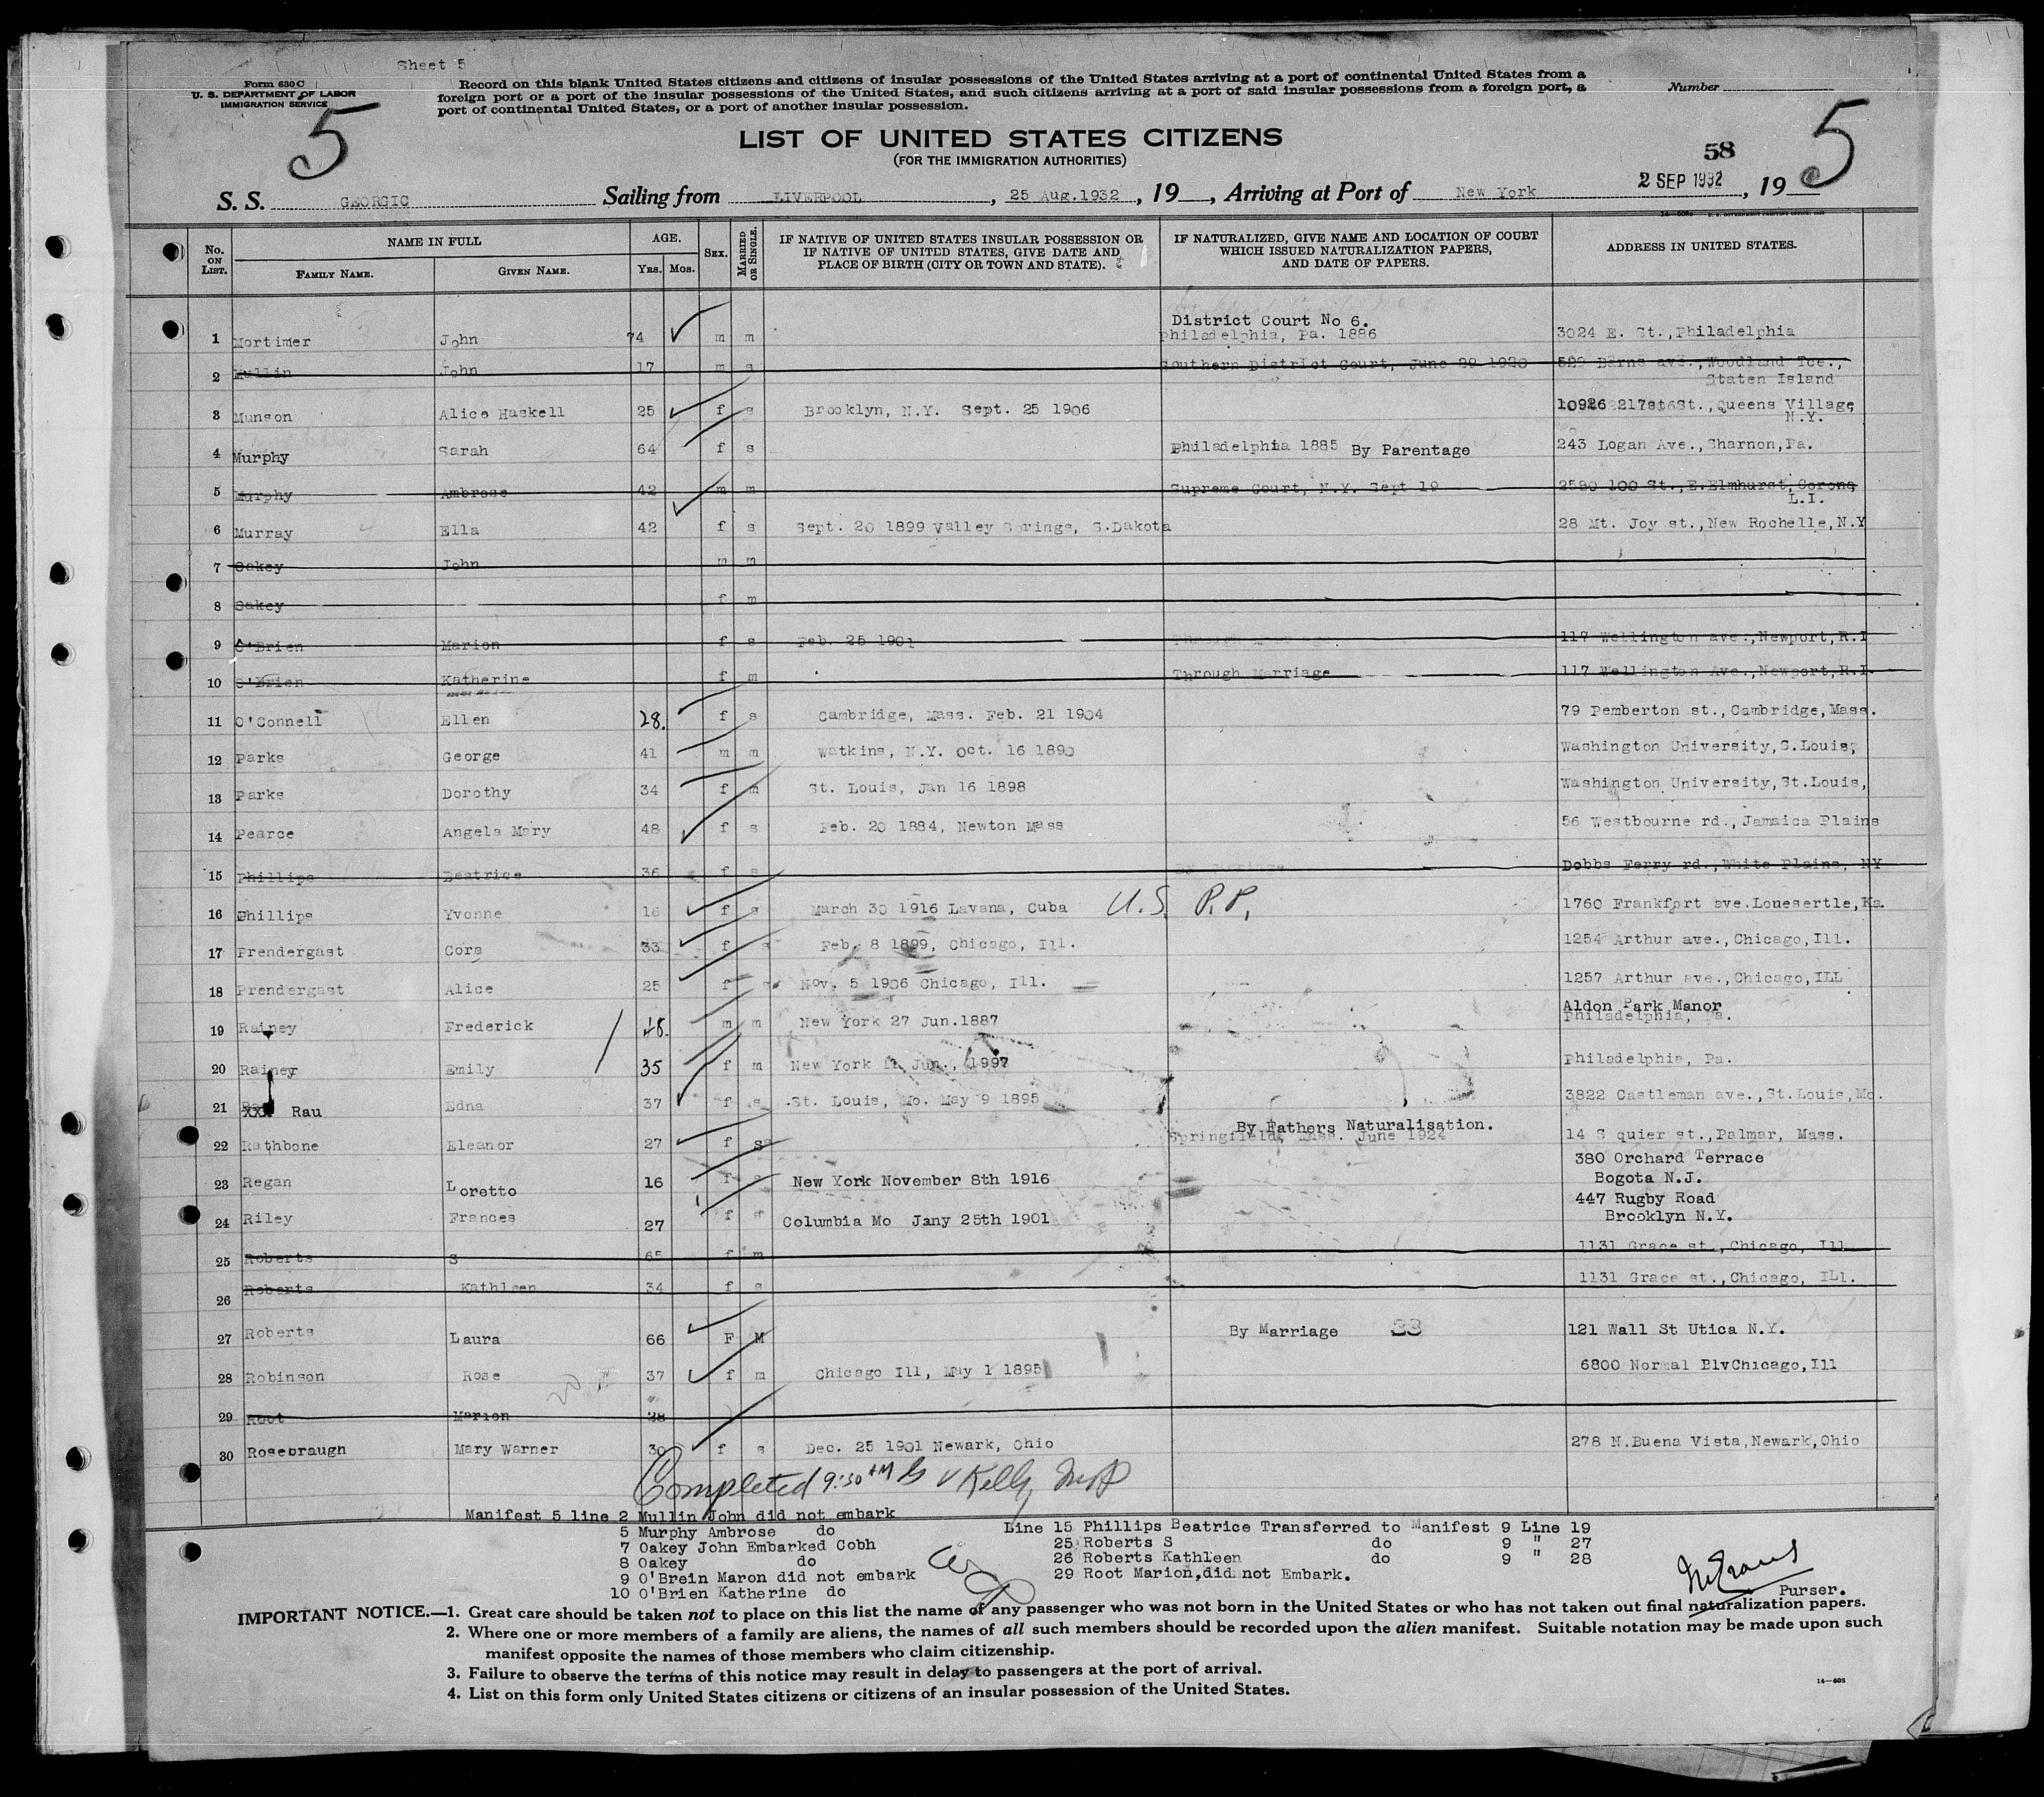 Sheet 5
Form 630 C
U. S. DEPARTMENT OF LABOR
IMMIGRATION SERVICE
Record on this blank United States citizens and citizens of insular possessions of the United States arriving at a port of continental United States from a
foreign port or a port of the insular possessions of the United States, and such citizens arriving at a port of said insular possessions from a foreign port, a
port of continental United States, or a port of another insular possession.
Number
5
5
LIST OF UNITED STATES CITIZENS
(FOR THE IMMIGRATION AUTHORITIES)
58
S. S. GEORGIC Sailing from LIVERPOOL, 25 Aug.1932, 19 , Arriving at Port of New York 2 SEP 1932, 19
No. ON LIST. NAME IN FULL FAMILY NAME. GIVEN NAME. AGE. YRS. MOS. SEX. MARRIED OR SINGLE. IF NATIVE OF UNITED STATES INSULAR POSSESSION OR IF NATIVE OF UNITED STATES, GIVE DATE AND PLACE OF BIRTH (CITY OR TOWN AND STATE). IF NATURALIZED, GIVE NAME AND LOCATION OF COURT WHICH ISSUED NATURALIZATION PAPERS, AND DATE OF PAPERS. ADDRESS IN UNITED STATES.
District Court No 6.
1 Mortimer John 74 m m Philadelphia, Pa. 1886 3024 E. St.,Philadelphia
2 Mullin John 17 m s Southern District Court, June 1920 Barns ave.,Woodland Tce.,
Staten Island
3 Munson Alice Haskell 25 f s Brooklyn, N.Y. Sept. 25 1906 10926 217st St.,Queens Village
N.Y.
4 Murphy Sarah 64 f s Philadelphia 1885 By Parentage 243 Logan Ave.,Sharnon,Pa.
5 Murphy Ambrose 42 m m Supreme Court, N.Y. Sept 19 2580 100 St.,E.Elmhurst,Corona
L.I.
6 Murray Ella 42 f s Sept. 20 1899 Valley Springs, S.Dakota 28 Mt. Joy st.,New Rochelle,N.Y
7 Oakey John m m
8 Oakey f m
9 O'Brien Marion f s Feb. 25 1901 117 Wellington ave.,Newport,R.I
10 O'Brien Katherine f m Through Marriage 117 Wellington Ave.,Newport,R.I.
11 O'Connell Ellen 28. f s Cambridge, Mass. Feb. 21 1904 79 Pemberton st.,Cambridge,Mass.
12 Parks George 41 m m Watkins, N.Y. Oct. 16 1890 Washington University,S.Louis,
13 Parks Dorothy 34 f m St. Louis, Jan 16 1898 Washington University,St.Louis,
14 Pearce Angela Mary 48 f s Feb. 20 1884, Newton Mass 56 Westbourne rd.,Jamaica Plains
15 Phillips Beatrice 36 f s By Marriage Dobbs Ferry rd.,White Plains, NY
16 Phillips Yvonne 16 f s March 30 1916 Lavana, Cuba U.S. P.P. 1760 Frankfort ave.Lonesertle,Ka.
17 Prendergast Cora 33 f s Feb. 8 1899, Chicago, Ill. 1254 Arthur ave.,Chicago,Ill.
18 Prendergast Alice 25 f s Nov. 5 1906 Chicago, Ill. 1257 Arthur ave.,Chicago,ILL
Aldon Park Manor
19 Rainey Frederick 48. m m New York 27 Jun.1887 Philadelphia, Pa.
20 Rainey Emily 35 f m New York 11 Jun., 1997 Philadelphia, Pa.
21 XXX Rau Edna 37 f s St. Louis, Mo. May 9 1895 3822 Castleman ave.,St.Louis,Mo.
By Fathers Naturalisation.
22 Rathbone Eleanor 27 f s Springfield, Mass. June 1924 14 Squier st.,Palmar, Mass.
380 Orchard Terrace
23 Regan Loretto 16 f s New York November 8th 1916 Bogota N.J.
447 Rugby Road
24 Riley Frances 27 f s Columbia Mo Jany 25th 1901 Brooklyn N.Y.
25 Roberts S 65 f m 1131 Grace st.,Chicago, Ill
26 Roberts Kathleen 34 f s 1131 Grace st.,Chicago, Ill.
27 Roberts Laura 66 F M By Marriage 23 121 Wall St Utica N.Y.
28 Robinson Rose 37 f m Chicago Ill, May 1 1895 6800 Normal BlvChicago,Ill
29 Root Marion 38
30 Rosebraugh Mary Warner 30 f s Dec. 25 1901 Newark, Ohio 278 N.Buena Vista,Newark,Ohio
Completed 9:30 AM Kelly Insp
Manifest 5 line 2 Mullin John did not embark
5 Murphy Ambrose do
7 Oakey John Embarked Cobh
8 Oakey do
9 O'Brein Maron did not embark
10 O'Brien Katherine do
Line 15 Phillips Beatrice Transferred to Manifest 9 Line 19
25 Roberts S do 9 " 27
26 Roberts Kathleen do 9 " 28
29 Root Marion,did not Embark.
Purser.
IMPORTANT NOTICE.—1. Great care should be taken not to place on this list the name of any passenger who was not born in the United States or who has not taken out final naturalization papers.
2. Where one or more members of a family are aliens, the names of all such members should be recorded upon the alien manifest. Suitable notation may be made upon such
manifest opposite the names of those members who claim citizenship.
3. Failure to observe the terms of this notice may result in delay to passengers at the port of arrival.
4. List on this form only United States citizens or citizens of an insular possession of the United States.
14—608